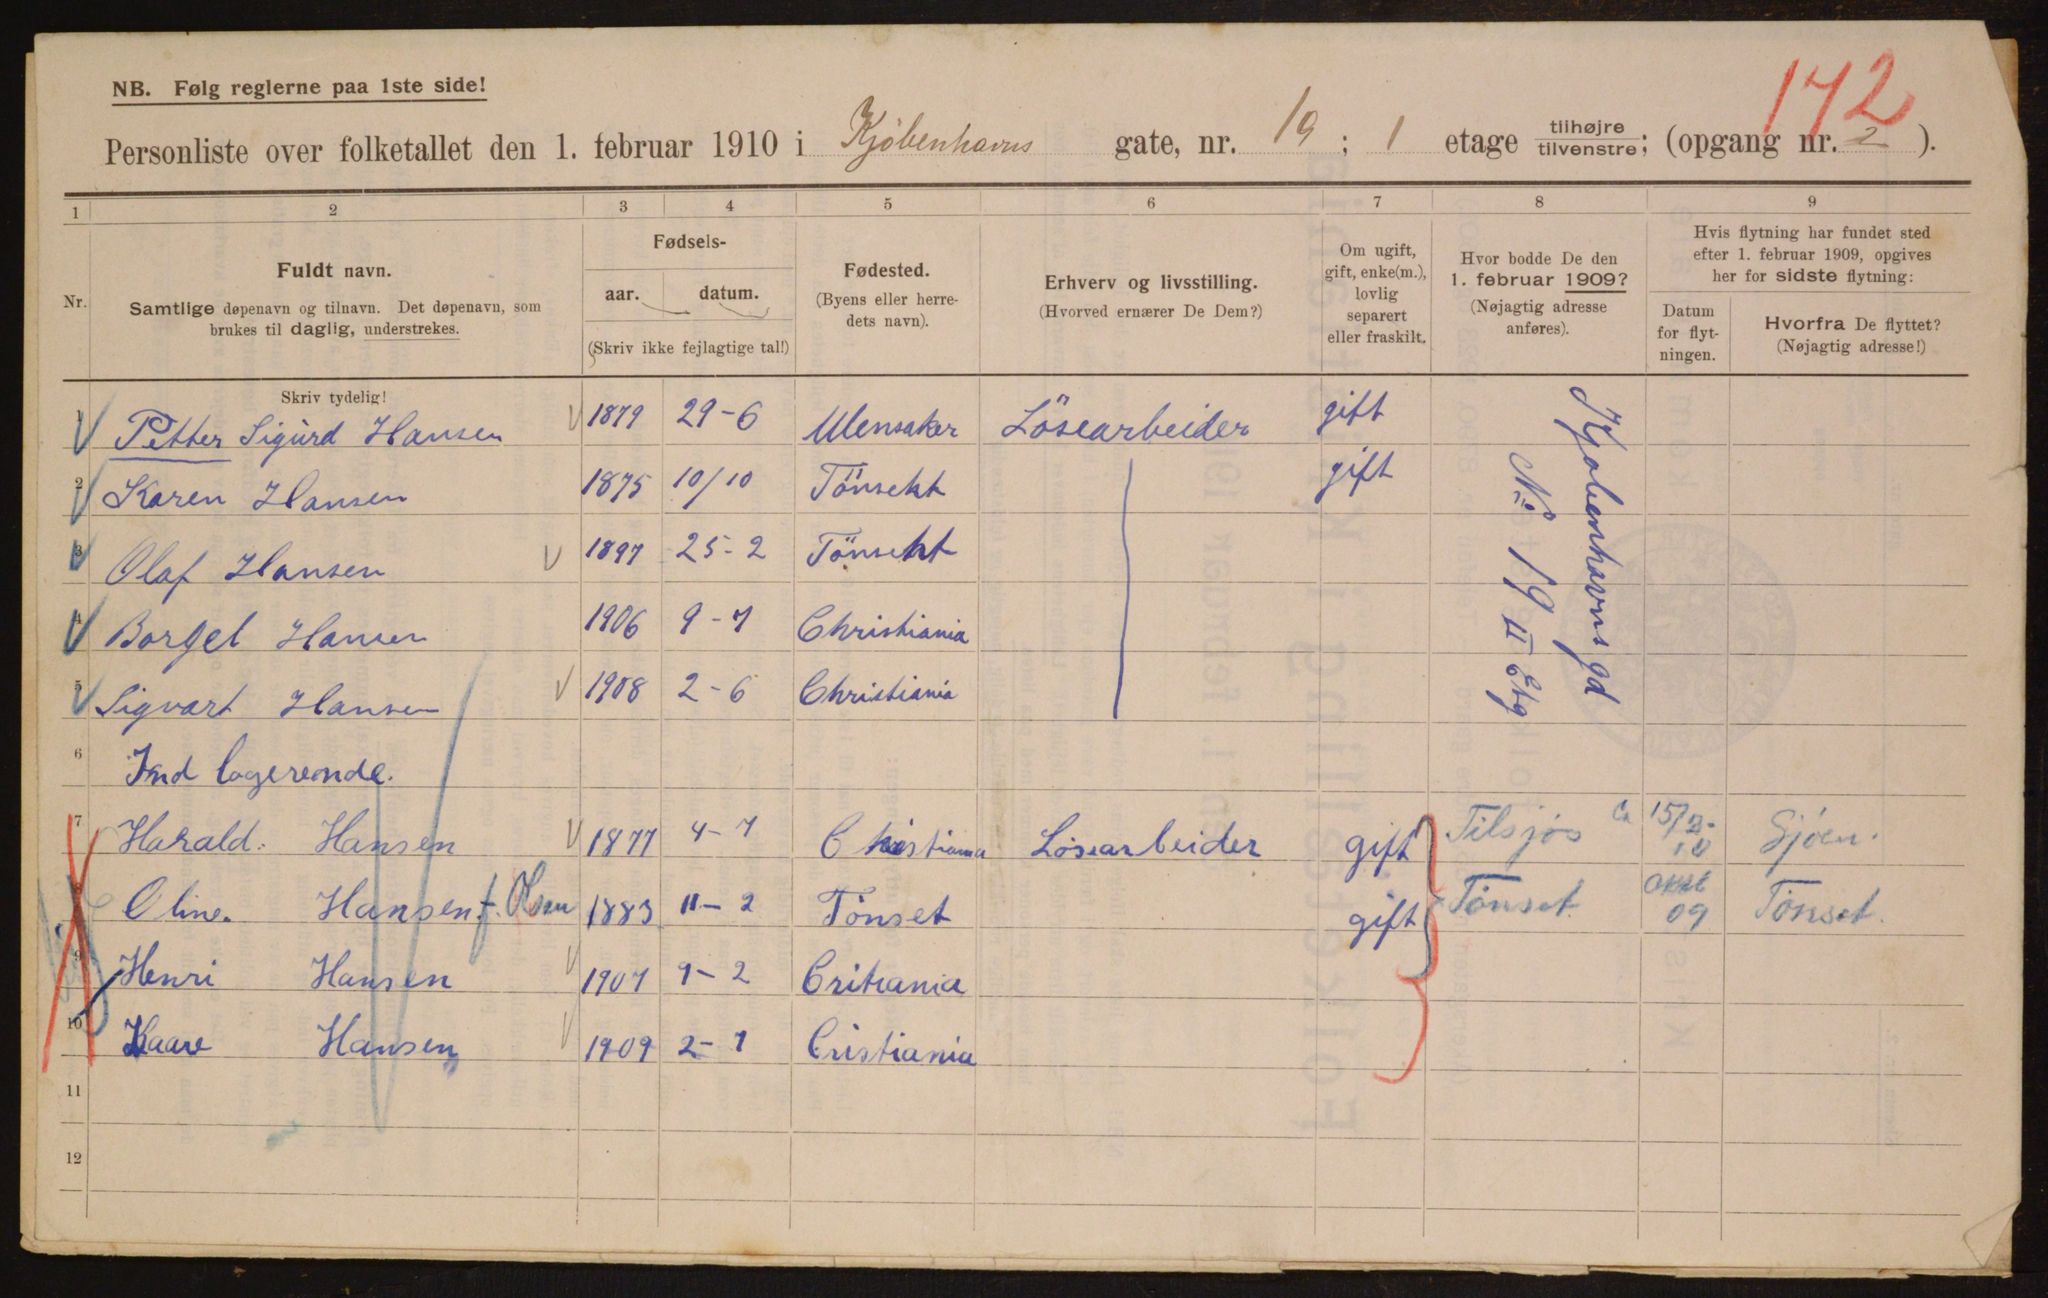 172
NB. Følg reglerne paa 1ste side!
Personliste over folketallet den 1. februar 1910 i Kjøbenhavns gate, nr. 19 ; 1 etage tilhøjre tilvenstre; (opgang nr. 2 ).
1 2 3 4 5 6 7 8 9
Nr.
Fuldt navn.
Samtlige døpenavn og tilnavn. Det døpenavn, som
brukes til daglig, understrekes.
Fødsels-
aar. datum.
(Skriv ikke fejlagtige tal!)
Fødested.
(Byens eller herre-
dets navn).
Erhverv og livsstilling.
(Hvorved ernærer De Dem?)
Om ugift,
gift, enke(m.),
lovlig
separert
eller fraskilt.
Hvor bodde De den
1. februar 1909?
(Nøjagtig adresse
anføres).
Hvis flytning har fundet sted
efter 1. februar 1909, opgives
her for sidste flytning:
Datum
for flyt-
ningen.
Hvorfra De flyttet?
(Nøjagtig adresse!)
Skriv tydelig!
1 Petter Sigurd Hansen 1879 29-6 Ulensaker Lösearbeider gift
Kjobenhavns gd
No 19 II Etg
2 Karen Hansen 1875 10/10 Tönseht gift
3 Olaf Hansen 1897 25-2 Tönseht
4 Borgel Hansen 1906 9-7 Christiania
5 Sigvart Hansen 1908 2-6 Christiania
6 Ind logerende.
7 Harald. Hansen 1877 4-7 Christiania Løsearbeider gift Tilsjøs Ca 15/2-10 Sjøen.
8 Oline. Hansen f. Olsen 1883 11-2 Tönset gift Tönset. Okt 09 Tönset.
9 Henri Hansen 1907 9-2 Critiania
10 Kaare Hansen 1909 2-7 Cristiania
11
12